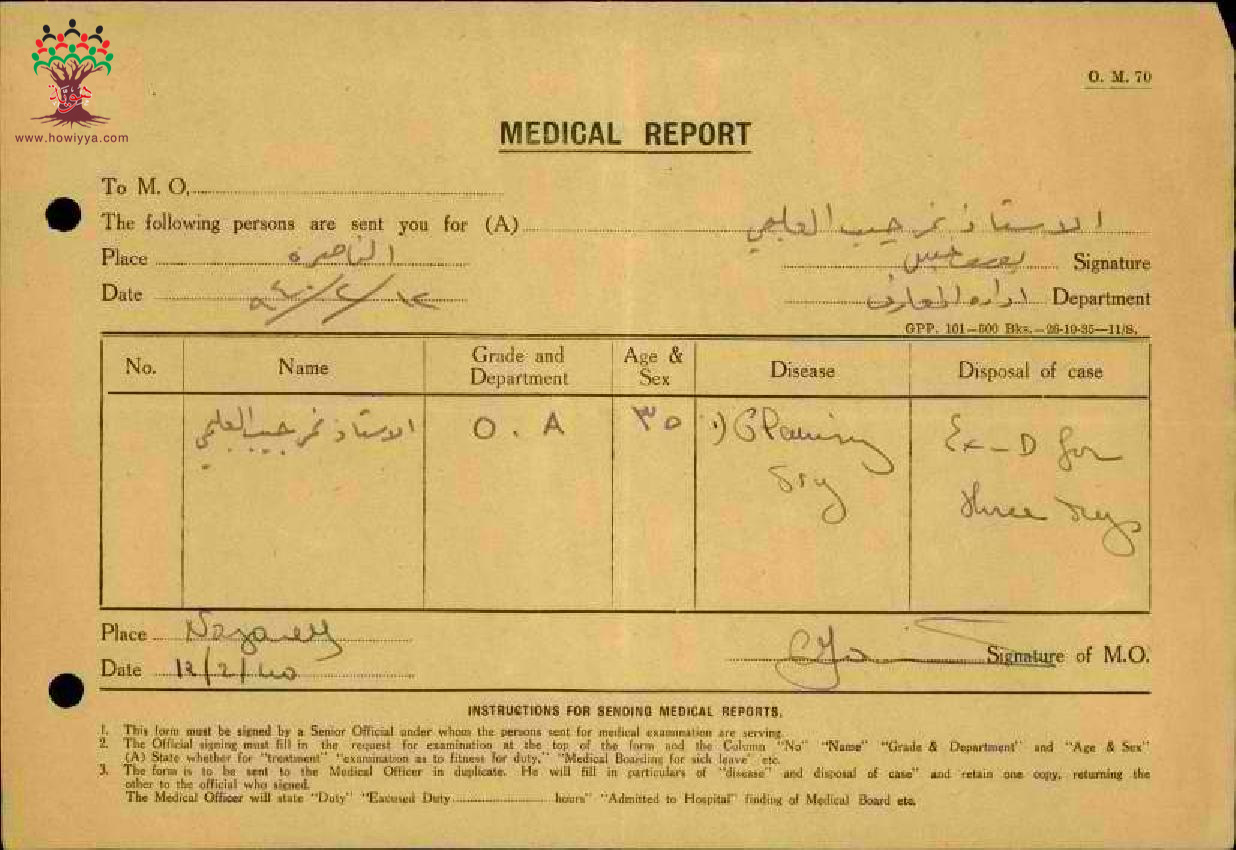 هوية
www.howiyya.com
O. M. 70
MEDICAL REPORT
To M. O.
The following persons are sent you for (A) الاستاذ نمر حبيب
Place الناصرة
Signature
Date ١٢/٢/٩٤٠
ادارة المعارف Department
GPP. 101—500 Bks.—26-10-35—11/S.
No. Name Grade and Department Age & Sex Disease Disposal of case
الاستاذ نمر حبيب O. A ٣٥ Ex-D for
three days
Place Nazareth
Signature of M.O.
Date 12/2/40
INSTRUCTIONS FOR SENDING MEDICAL REPORTS.
1. This form must be signed by a Senior Official under whom the persons sent for medical examination are serving.
2. The Official signing must fill in the request for examination at the top of the form and the Column "No" "Name" "Grade & Department" and "Age & Sex"
(A) State whether for "treatment" "examination as to fitness for duty," "Medical Boarding for sick leave" etc.
3. The form is to be sent to the Medical Officer in duplicate. He will fill in particulars of "disease" and disposal of case" and retain one copy, returning the
other to the official who signed.
The Medical Officer will state "Duty" "Excused Duty ............ hours" "Admitted to Hospital" finding of Medical Board etc.